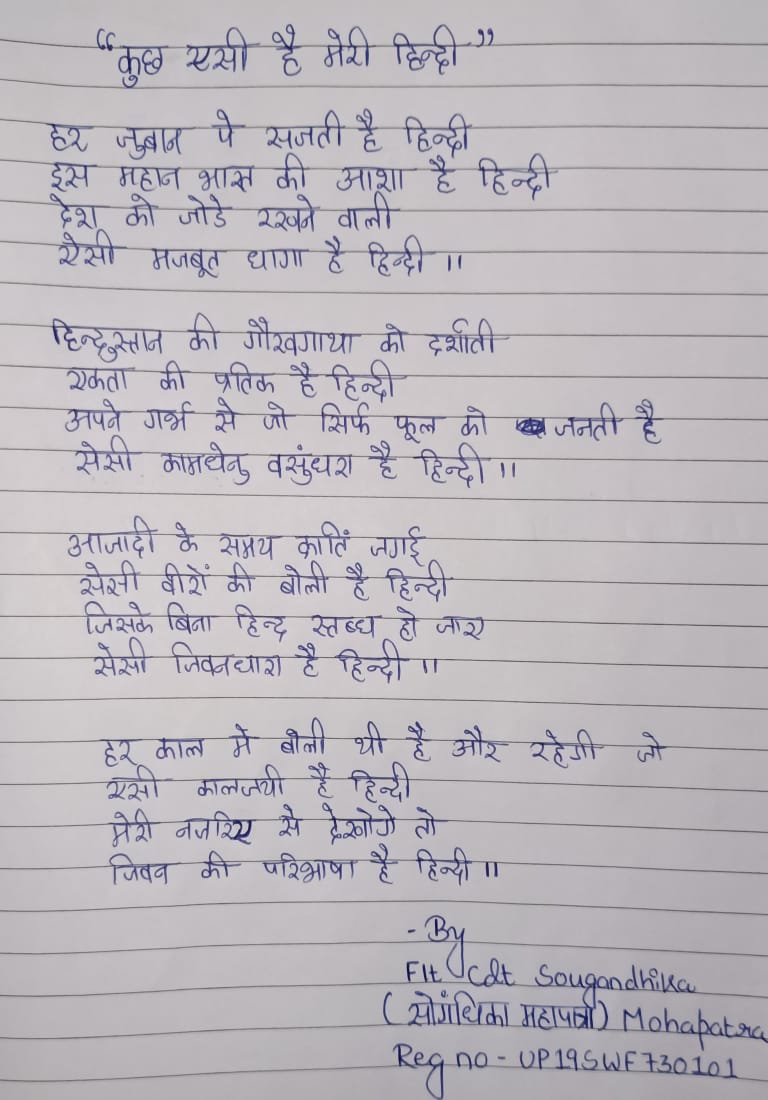 “कुछ एसी है मेरी हिन्दी”
हर जुबान पे सजती है हिन्दी
इस महान भारत की आशा है हिन्दी
देश को जोडे रखने वाली
ऐसी मजबूत धागा है हिन्दी ॥
हिन्दुस्तान की गौरवगाथा को दर्शाती
एकता की प्रतिक है हिन्दी
अपने गर्भ से जो सिर्फ फूल को जनती है
ऐसी कामधेनु वसुंधरा है हिन्दी ॥
आजादी के समय क्रातिं जगाई
ऐसी वीरों की बोली है हिन्दी
जिसके बिना हिन्द स्तब्ध हो जाए
ऐसी जिवनधारा है हिन्दी ॥
हर काल मे बोली थी है और रहेगी जो
एसी कालजयी है हिन्दी
मेरी नजरिए से देखोगे तो
जिवन की परिभाषा है हिन्दी ॥
- By
Flt Cdt Sougandhika
(सोगंधिका महापात्रा) Mohapatra
Reg no - UP19SWF730101